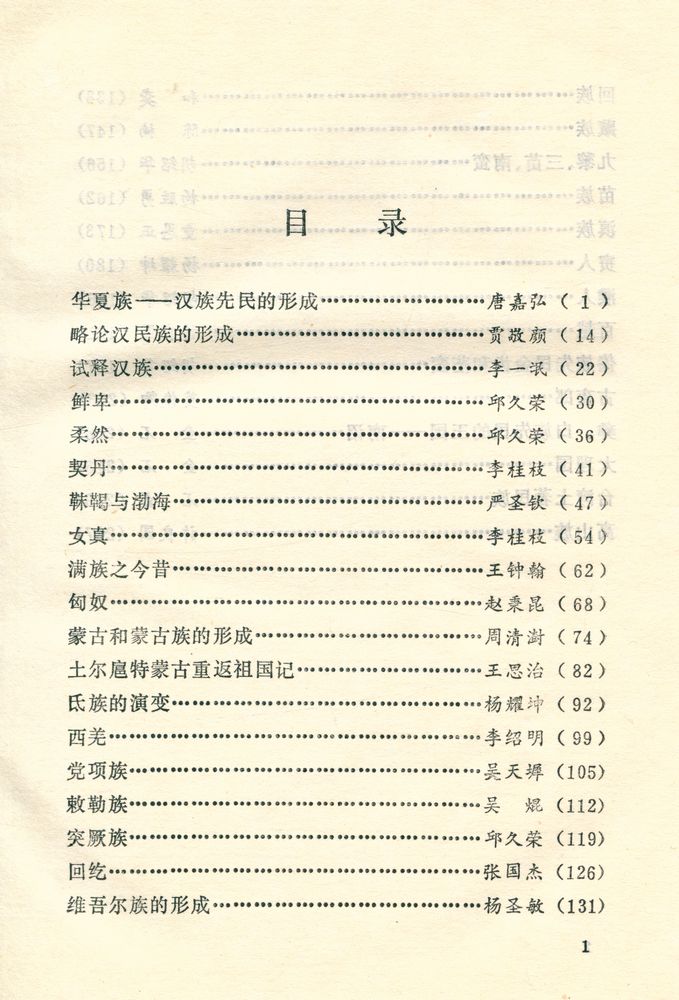 目 录
华夏族——汉族先民的形成……………………唐嘉弘（1）
略论汉民族的形成……………………贾敬颜（14）
试释汉族……………………李一氓（22）
鲜卑……………………邱久荣（30）
柔然……………………邱久荣（36）
契丹……………………李桂枝（41）
靺鞨与渤海……………………严圣钦（47）
女真……………………李桂枝（54）
满族之今昔……………………王钟翰（62）
匈奴……………………赵秉昆（68）
蒙古和蒙古族的形成……………………周清澍（74）
土尔扈特蒙古重返祖国记……………………王思治（82）
氐族的演变……………………杨耀坤（92）
西羌……………………李绍明（99）
党项族……………………吴天墀（105）
敕勒族……………………吴 焜（112）
突厥族……………………邱久荣（119）
回纥……………………张国杰（126）
维吾尔族的形成……………………杨圣敏（131）
1